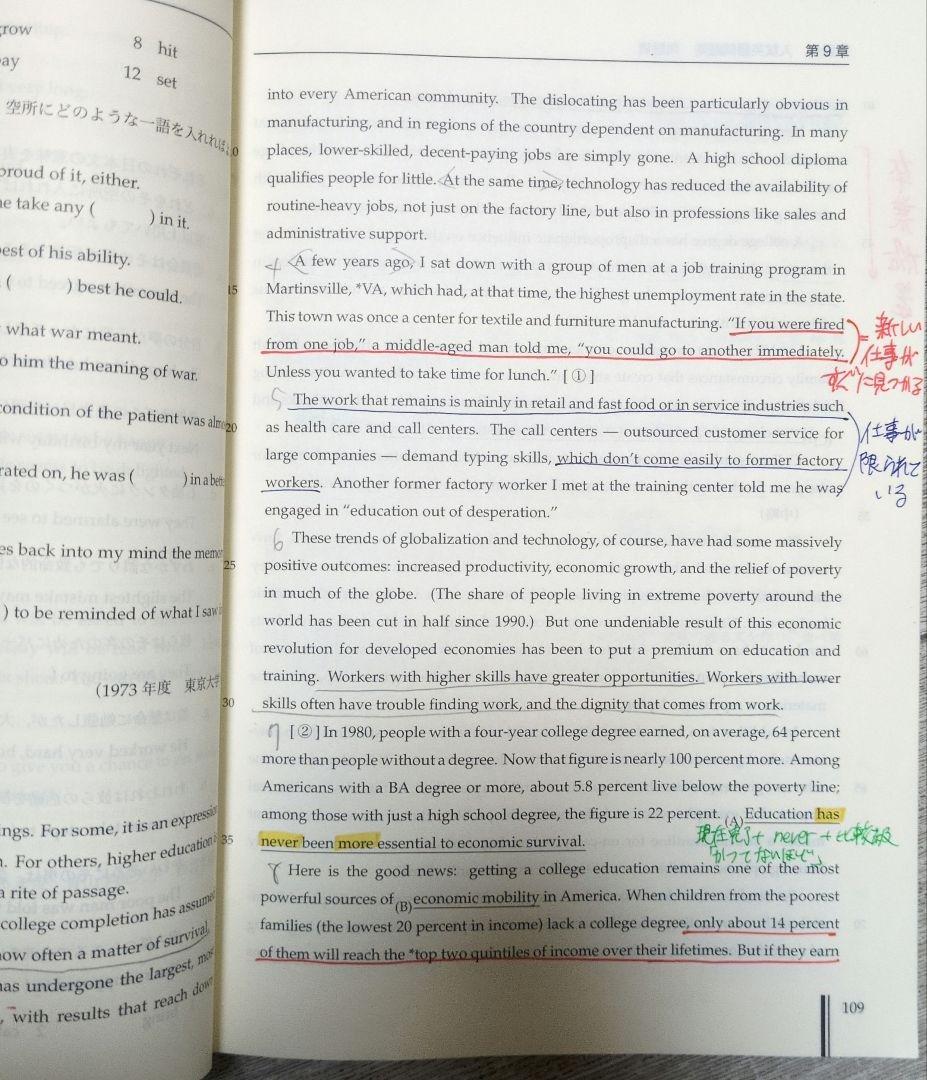 row
8 hit
ay
12 set
空所にどのような一語を入れれば
proud of it, either.
e take any ( ) in it.
est of his ability.
( ) best he could.
what war meant.
o him the meaning of war.
condition of the patient was
rated on, he was ( ) in a
es back into my mind the
) to be reminded of what I saw
(1973 年度 東京大学
ings. For some, it is an
. For others, higher education
a rite of passage.
college completion has
now often a matter of survival,
has undergone the largest,
, with results that reach down
第9章
into every American community. The dislocating has been particularly obvious in
manufacturing, and in regions of the country dependent on manufacturing. In many
10
places, lower-skilled, decent-paying jobs are simply gone. A high school diploma
qualifies people for little. <At the same time,> technology has reduced the availability of
routine-heavy jobs, not just on the factory line, but also in professions like sales and
administrative support.
4 <A few years ago,> I sat down with a group of men at a job training program in
15
Martinsville, *VA, which had, at that time, the highest unemployment rate in the state.
This town was once a center for textile and furniture manufacturing. “If you were fired
from one job,” a middle-aged man told me, “you could go to another immediately.
Unless you wanted to take time for lunch.” [ ① ]
=新しい
仕事が
すぐに見つかる
5 The work that remains is mainly in retail and fast food or in service industries such
20
as health care and call centers. The call centers — outsourced customer service for
large companies — demand typing skills, which don’t come easily to former factory
workers. Another former factory worker I met at the training center told me he was
engaged in “education out of desperation.”
仕事が
限られて
いる
6 These trends of globalization and technology, of course, have had some massively
25
positive outcomes: increased productivity, economic growth, and the relief of poverty
in much of the globe. (The share of people living in extreme poverty around the
world has been cut in half since 1990.) But one undeniable result of this economic
revolution for developed economies has been to put a premium on education and
training. Workers with higher skills have greater opportunities. Workers with lower
30
skills often have trouble finding work, and the dignity that comes from work.
7 [ ② ] In 1980, people with a four-year college degree earned, on average, 64 percent
more than people without a degree. Now that figure is nearly 100 percent more. Among
Americans with a BA degree or more, about 5.8 percent live below the poverty line;
among those with just a high school degree, the figure is 22 percent. (A) Education has
35
never been more essential to economic survival.
現在完了+ never + 比較級
「かつてないほど」
8 Here is the good news: getting a college education remains one of the most
powerful sources of (B) economic mobility in America. When children from the poorest
families (the lowest 20 percent in income) lack a college degree, only about 14 percent
of them will reach the *top two quintiles of income over their lifetimes. But if they earn
109